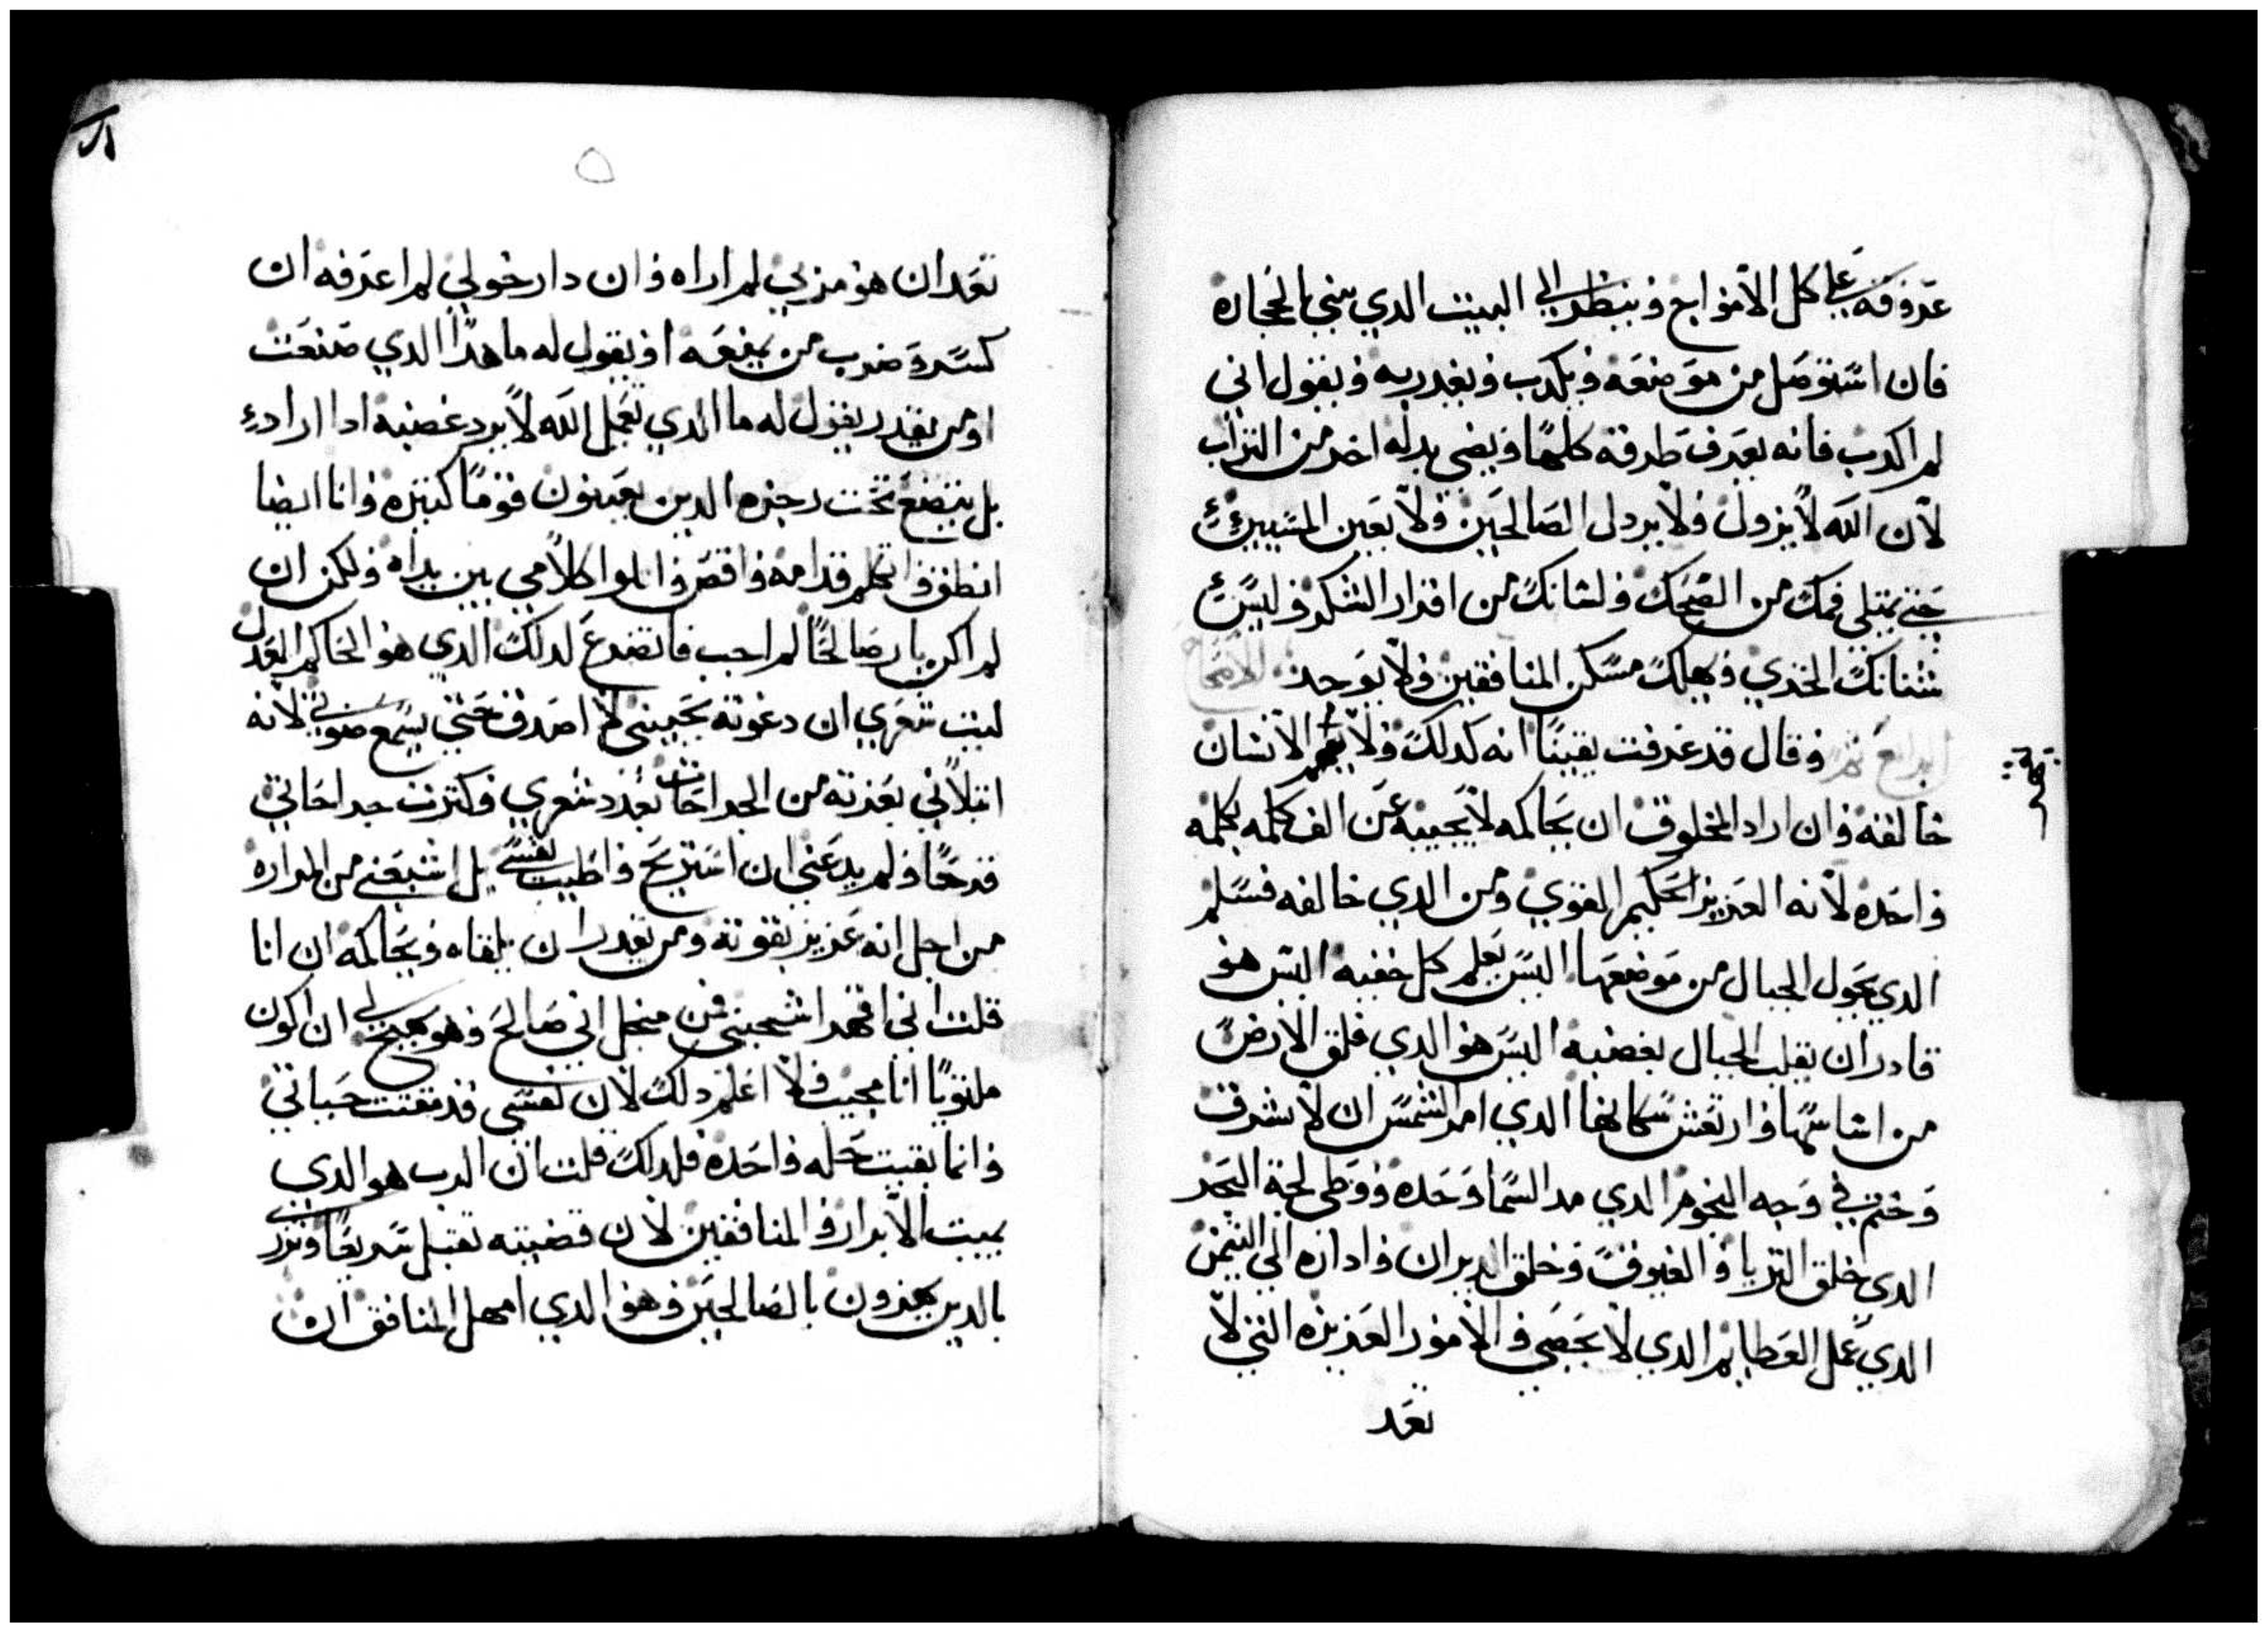 عروقه على كل الامواج وينظر الى البيت الدي بني بالحجاره
فان استوصل من موضعه ويكدب ويغدر به ويقول اني
لم اكدب فانه يعرف طرقه كلها ويضى بدله اخر من التراب
لان الله لا يزول ولا يردل الصالحين ولا يعين المسيين
حتى يمتلى فمك من الضحك ولسانك من اقرار الشكر وليس
شنانك الخزي ويهلك مسكن المنافقين ولا يوجد الاصحاح
الرابع
وقال قد عرفت يقينًا انه كدلك ولا الانسان
خالقه وان اراد المخلوق ان يحاكمه لا يجيبه عن الف كلمه بكلمه
واحده لانه العزيز الحكيم القوي ومن الدي خالفه فسلم
الدي يحول الجبال من موضعها اليس يعلم كل خفيه اليس هو
قادر ان يقلب الجبال بغضبه اليس هو الدي قلق الارض
من اساسها وارتعش سكانها الدي امر الشمس ان لا تشرق
وختم في وجه النجوم الدي مد السما وحده ووطى لجة البحر
الدى خلق الثريا والعيوق وخلق الدبران واداره الى التيمن
الدي عمل العظايم الدي لا تحصى والامور العزيزه التي لا
تعد
تعد ان هو مر بي لم اراه وان دار حولي لم اعرفه ان
كسره ضرب من يمنعه او يقول له ما هدا الدي صنعت
او من يقدر يقول له ما الدي تعمل الله لا يرد غضبه ادا اراد
بل يتضع تحت رجزه الدين يعينون قومًا كتيره وانا ايضا
انطق واتكلم قدامه واقص واتلوا كلامي بين يداه ولكن ان
لم اكن بار صالحًا لم احب فاتضرع لدلك الدي هو الحاكم العدل
ليت شعري ان دعوته يجيبني لا اصدق حتى يسمع صوتي لانه
ابتلاني بعزته من الجراحات بعدد شعري وكترت جراحاتي
قرحًا ولم يدعني ان استريح واطيب نفسي بل اشبعني من المراره
من اجل انه عزيز بقوته ومن يقدر ان يلقاه ويحاكمه ان انا
قلت اني اقهر اشجبني فمن اني صالح وهو لي ان اكون
ملتويًا انا مجيب ولا اعلم دلك لان نفسي قد حياتي
وانما بقيت خله واحده فلدلك قلت ان الرب هو الدي
يميت الابرار والمنافقين لان قضيته تقبل سريعًا
بالدين يهزون بالصالحين وهو الدي امهل المنافق ان